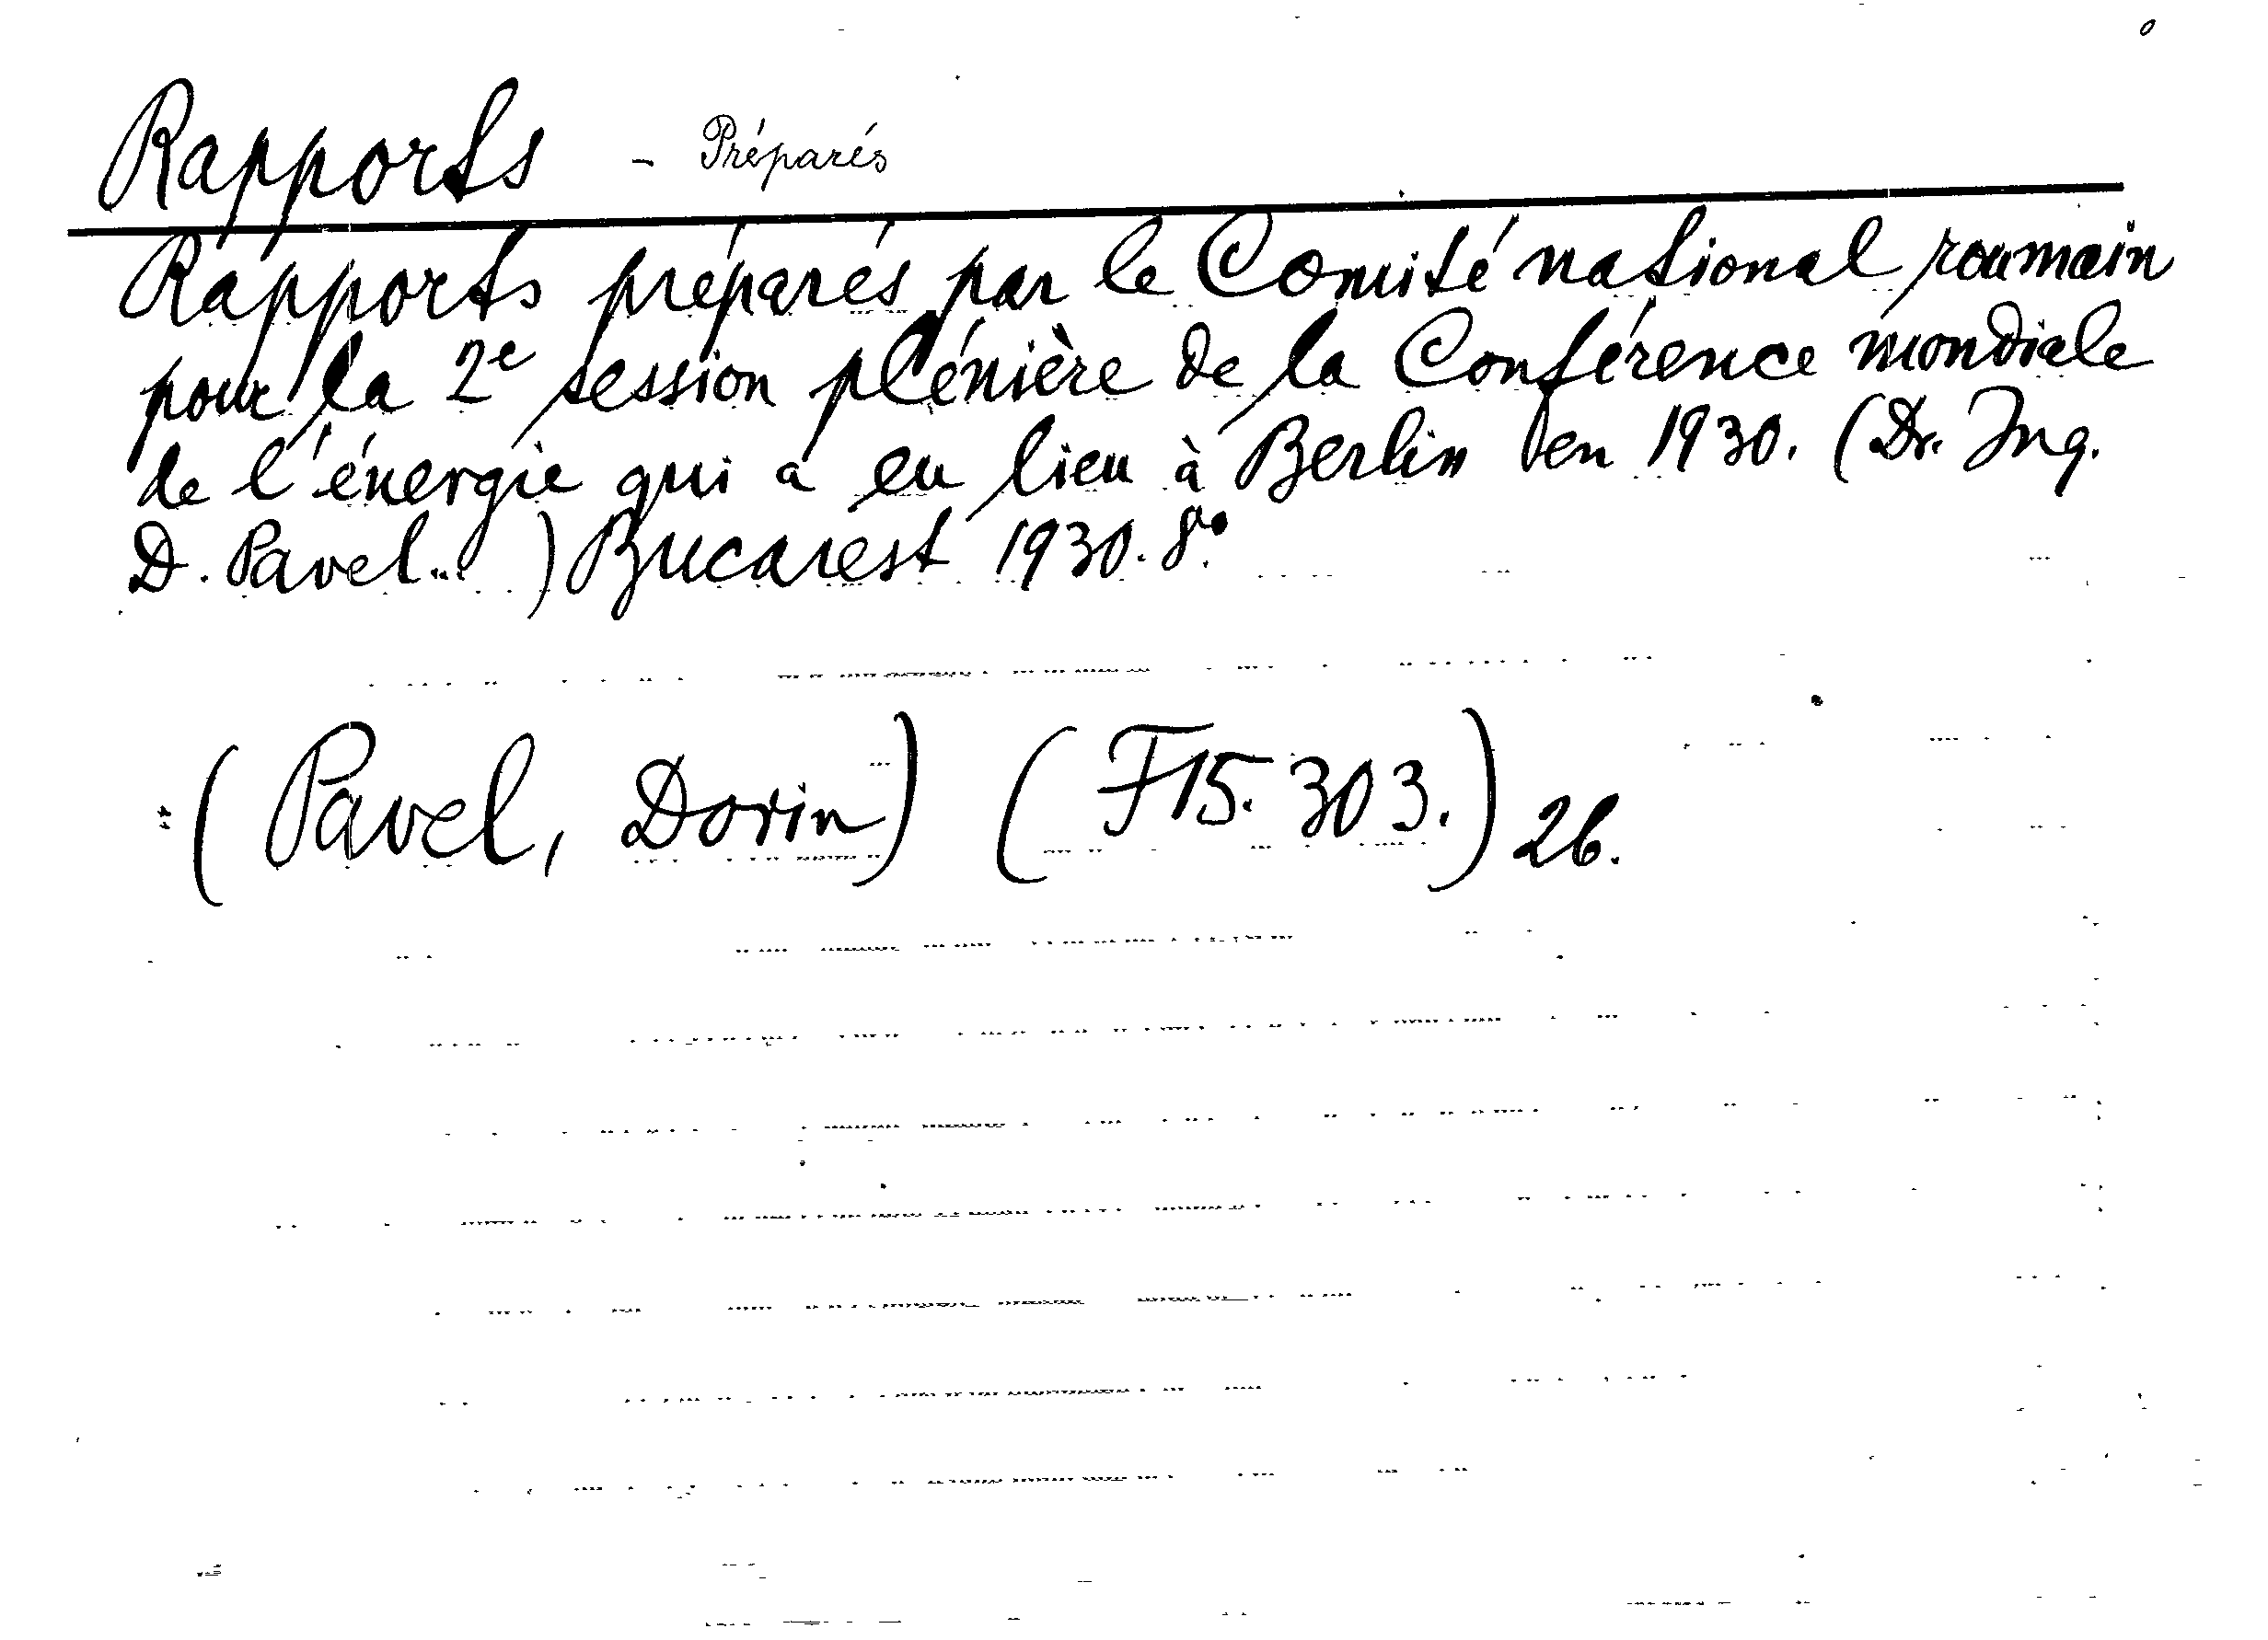 Rapports - Préparés
Rapports préparés par le Comité national roumain
pour la 2e session plénière de la Conférence mondiale
de l'énergie qui a eu lieu à Berlin en 1930. (Dr. Ing.
D. Pavel... ) Bucarest 1930. 8º.
(Pavel, Dorin) (F15.303.) 26.